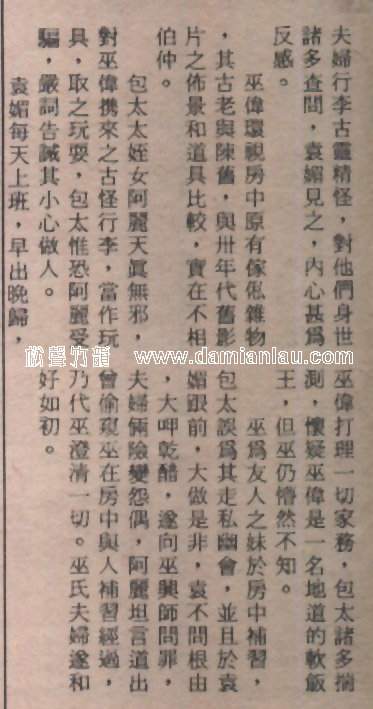 夫婦行李古靈精怪，對他們身世
諸多查問，袁媚見之，內心甚爲
反感。
巫偉環視房中原有傢俬雜物
，其古老與陳舊，與卅年代舊影
片之佈景和道具比較，實在不相
伯仲。
包太太姪女阿麗天眞無邪，
對巫偉携來之古怪行李，當作玩
具，取之玩耍，包太惟恐阿麗受
騙，嚴詞告誡其小心做人。
袁媚每天上班，早出晚歸，
巫偉打理一切家務，包太諸多揣
測，懷疑巫偉是一名地道的軟飯
王，但巫仍懵然不知。
巫爲友人之妹於房中補習，
包太誤爲其走私幽會，並且於袁
媚跟前，大做是非，袁不問根由
，大呷乾醋，遂向巫興師問罪，
夫婦倆險變怨偶，阿麗坦言道出
曾偷窺巫在房中與人補習經過，
乃代巫澄清一切。巫氏夫婦遂和
好如初。
www.damianlau.com